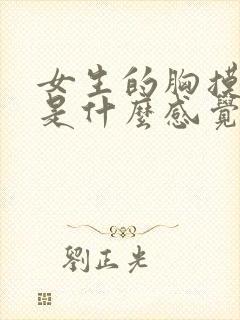 女生的胸摸
是什麼感覺
劉正光